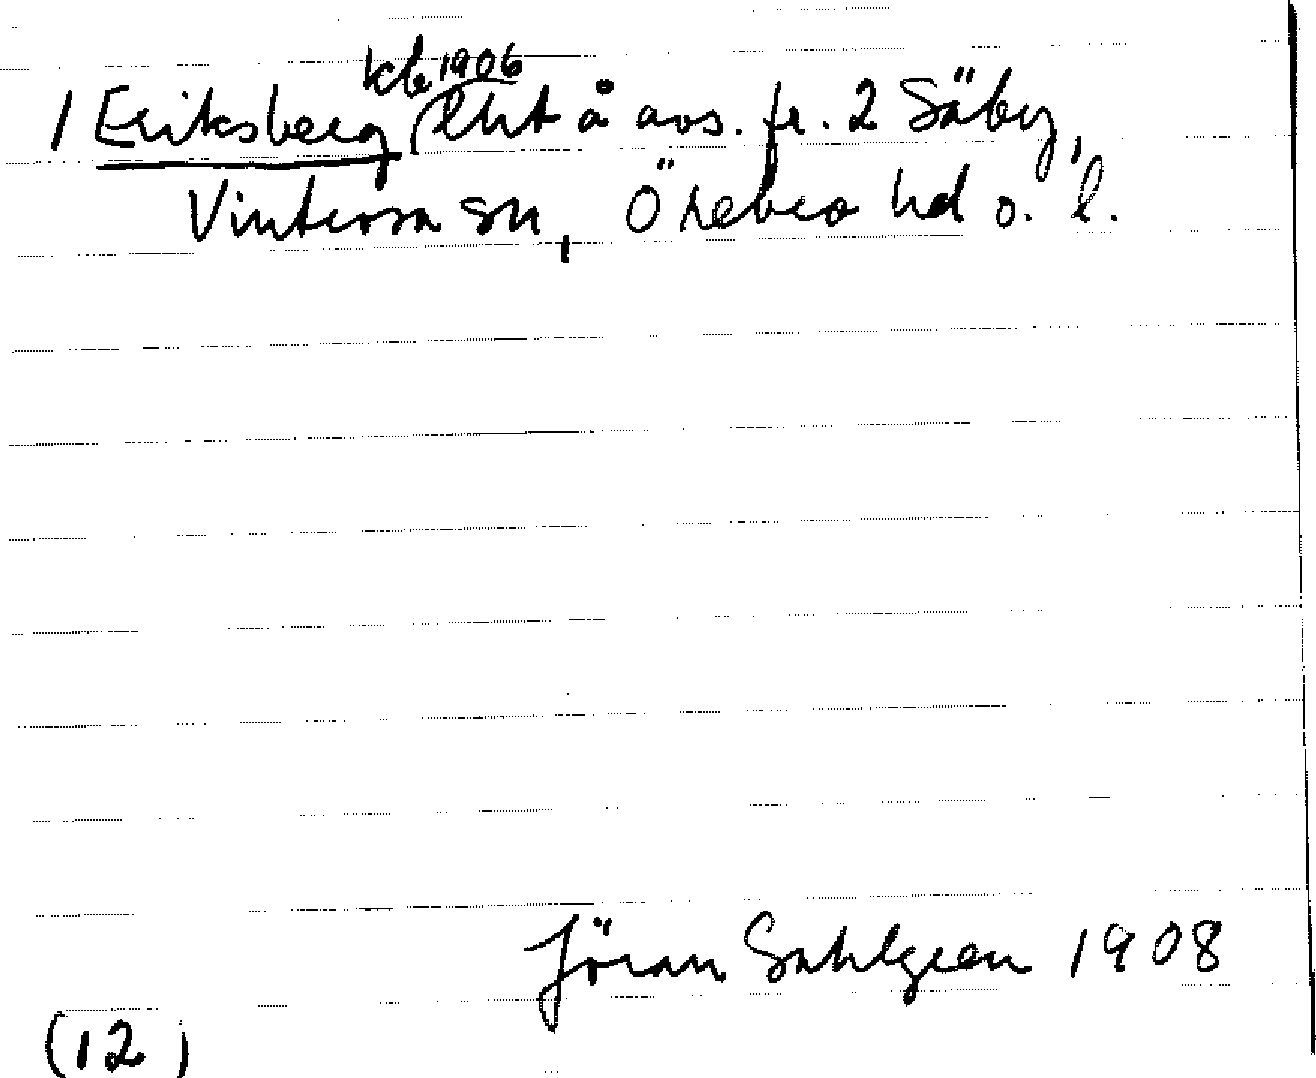 kb 1906
1 Eriksberg lht å avs. fr. 2 Säby,
Vinterosa sn, Örebro hd o. l.
Jöran Sahlgren 1908
(12)